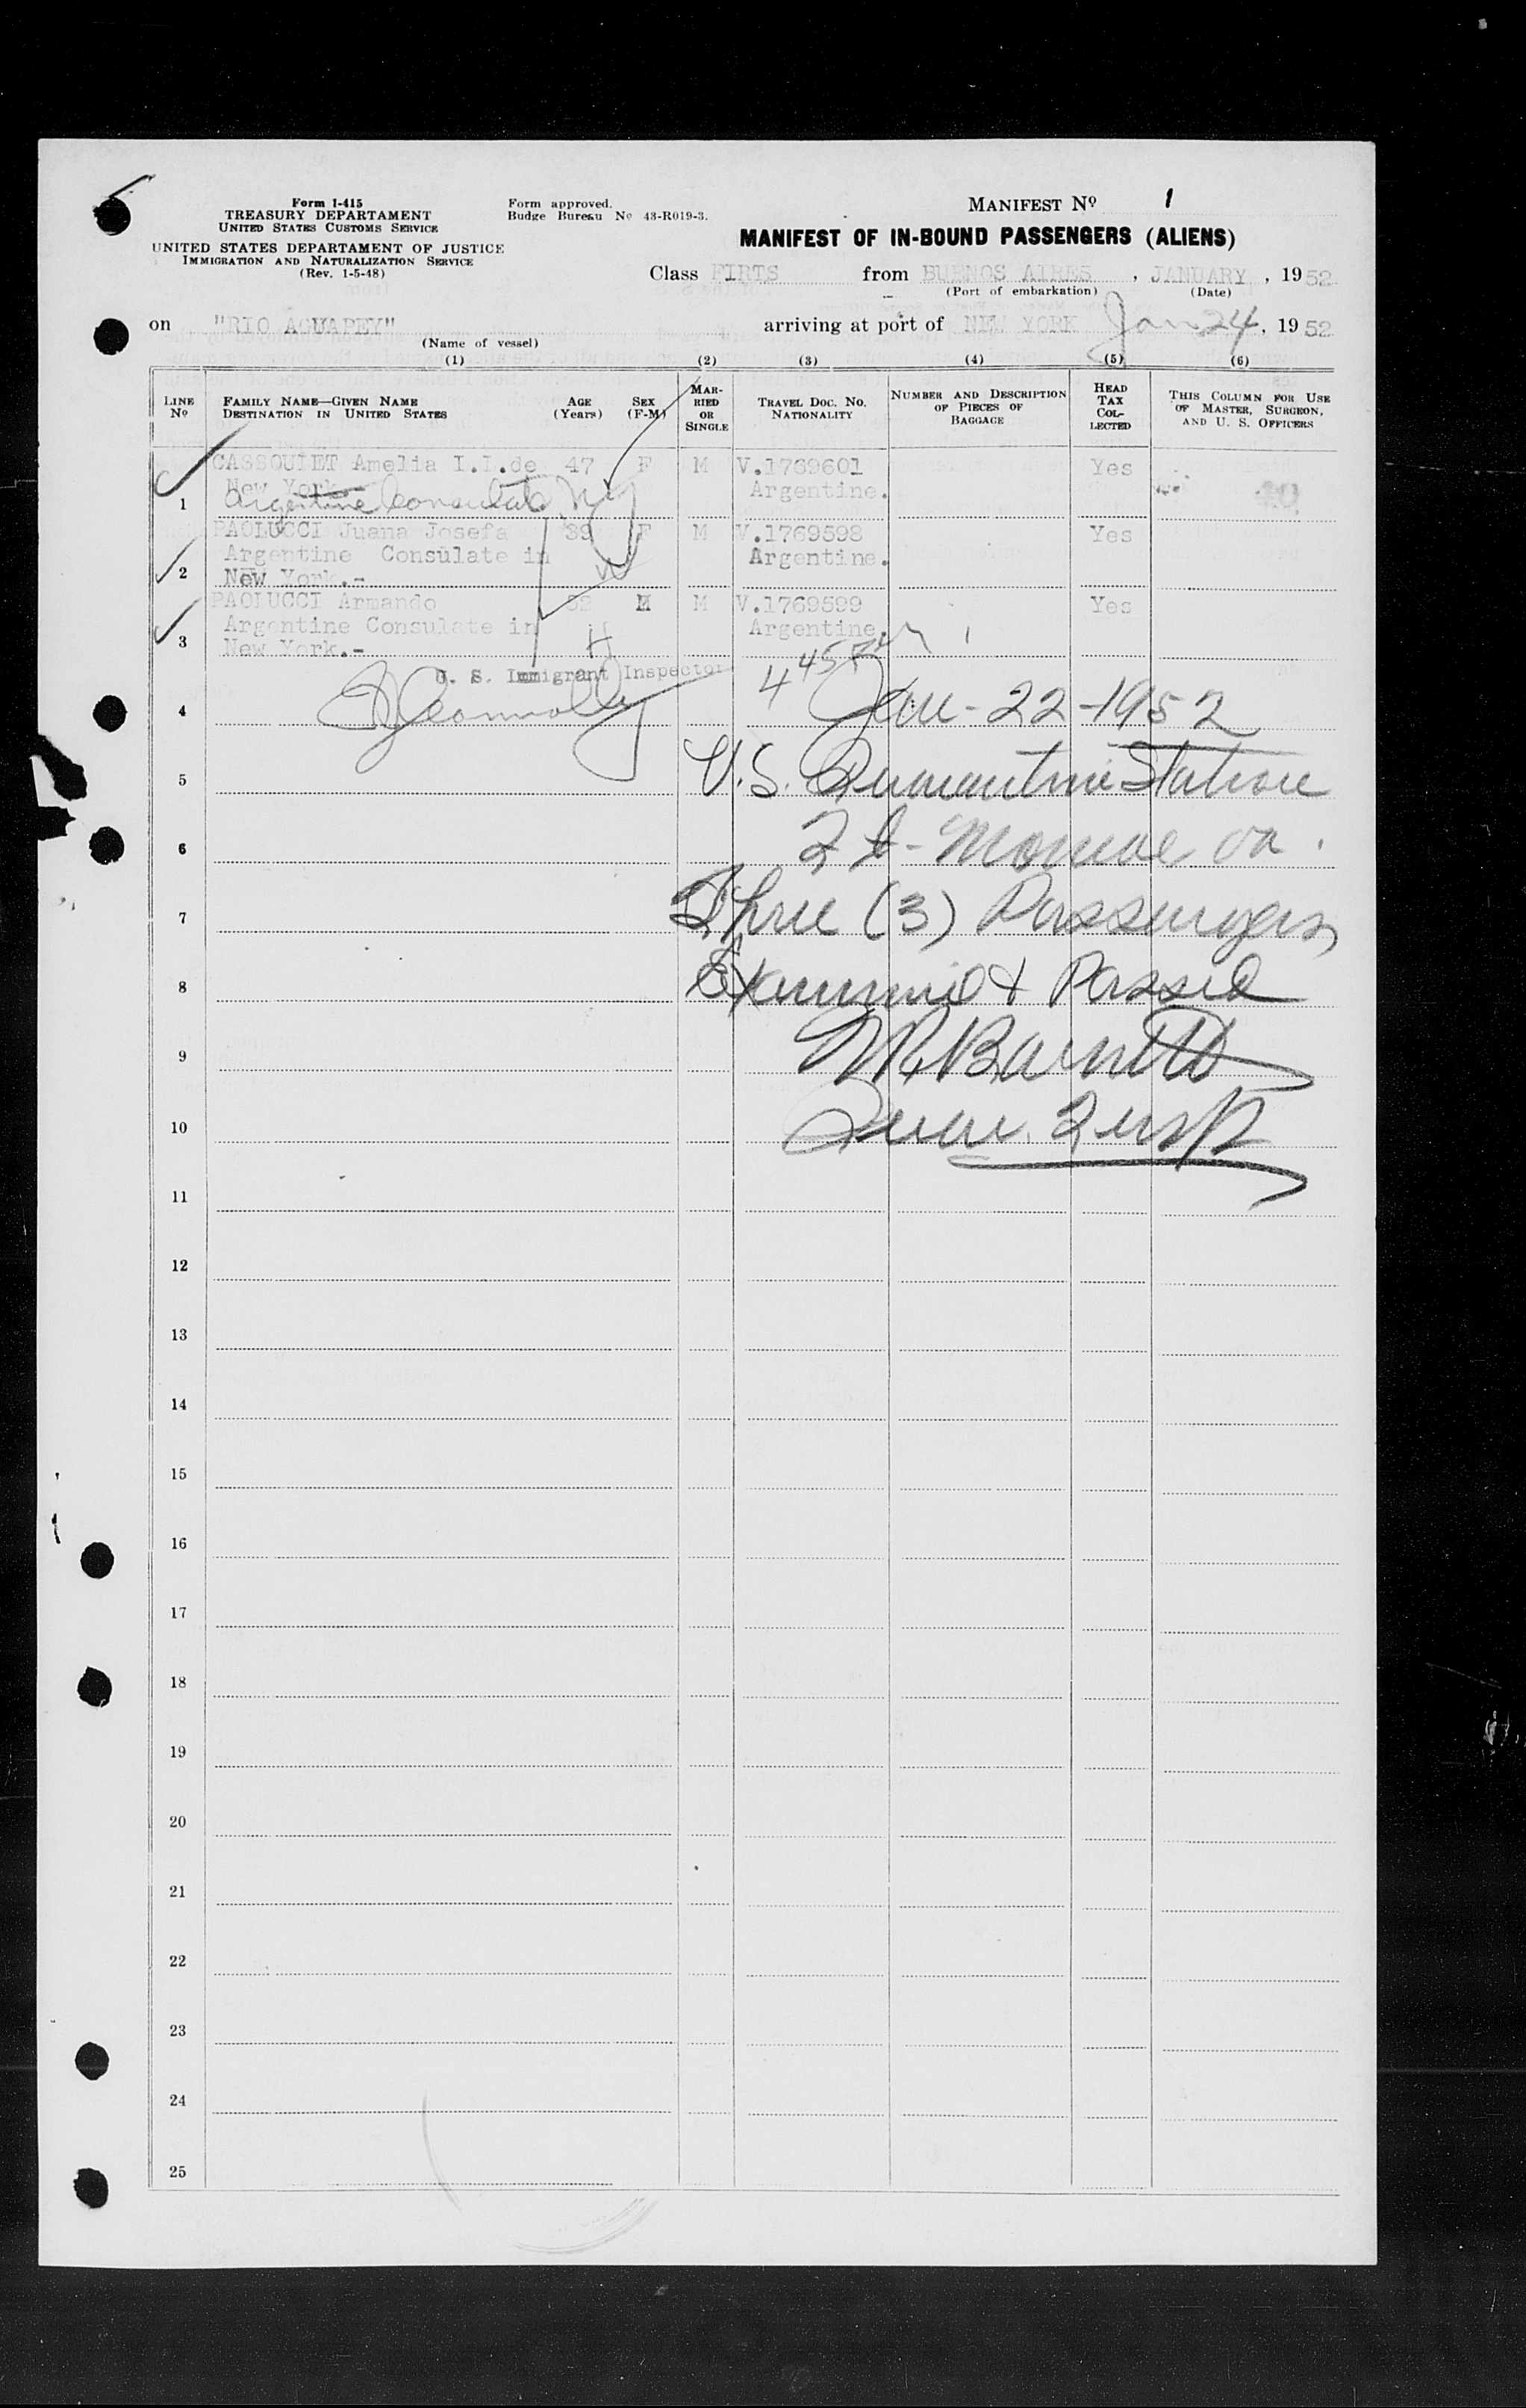 Form 1-415
TREASURY DEPARTAMENT
UNITED STATES CUSTOMS SERVICE
UNITED STATES DEPARTAMENT OF JUSTICE
IMMIGRATION AND NATURALIZATION SERVICE
(Rev. 1-5-48)
Form approved.
Budge Bureau Nº 43-R019-3.
MANIFEST Nº 1
MANIFEST OF IN-BOUND PASSENGERS (ALIENS)
Class FIRTS from BUENOS AIRES, JANUARY, 1952
(Port of embarkation) (Date)
on "RIO AGUAPEY" arriving at port of NEW YORK Jan 24, 1952
(Name of vessel)
(1) (2) (3) (4) (5) (6)
LINE Nº
FAMILY NAME—GIVEN NAME
DESTINATION IN UNITED STATES
AGE (Years)
SEX (F-M)
MAR-RIED OR SINGLE
TRAVEL DOC. NO. NATIONALITY
NUMBER AND DESCRIPTION OF PIECES OF BAGGAGE
HEAD TAX COL-LECTED
THIS COLUMN FOR USE OF MASTER, SURGEON, AND U. S. OFFICERS
CASSOULET Amelia I.I.de 47 F M V.1769601 Yes
New York Argentine.
1 Argentine Consulate NY
PAOLUCCI Juana Josefa 39 F M V.1769598 Yes
Argentine Consulate in Argentine.
2 New York.-
PAOLUCCI Armando M M V.1769599 Yes
Argentine Consulate in Argentine.
3 New York.-
U. S. Immigrant Inspector
4 Jan-22-1952
5 U.S. Quarantine Station
6 Ft-Monroe Va.
7 Three (3) Passengers
8 Examined & Passed
9 Barnett
10 Quar. Insp
11
12
13
14
15
16
17
18
19
20
21
22
23
24
25